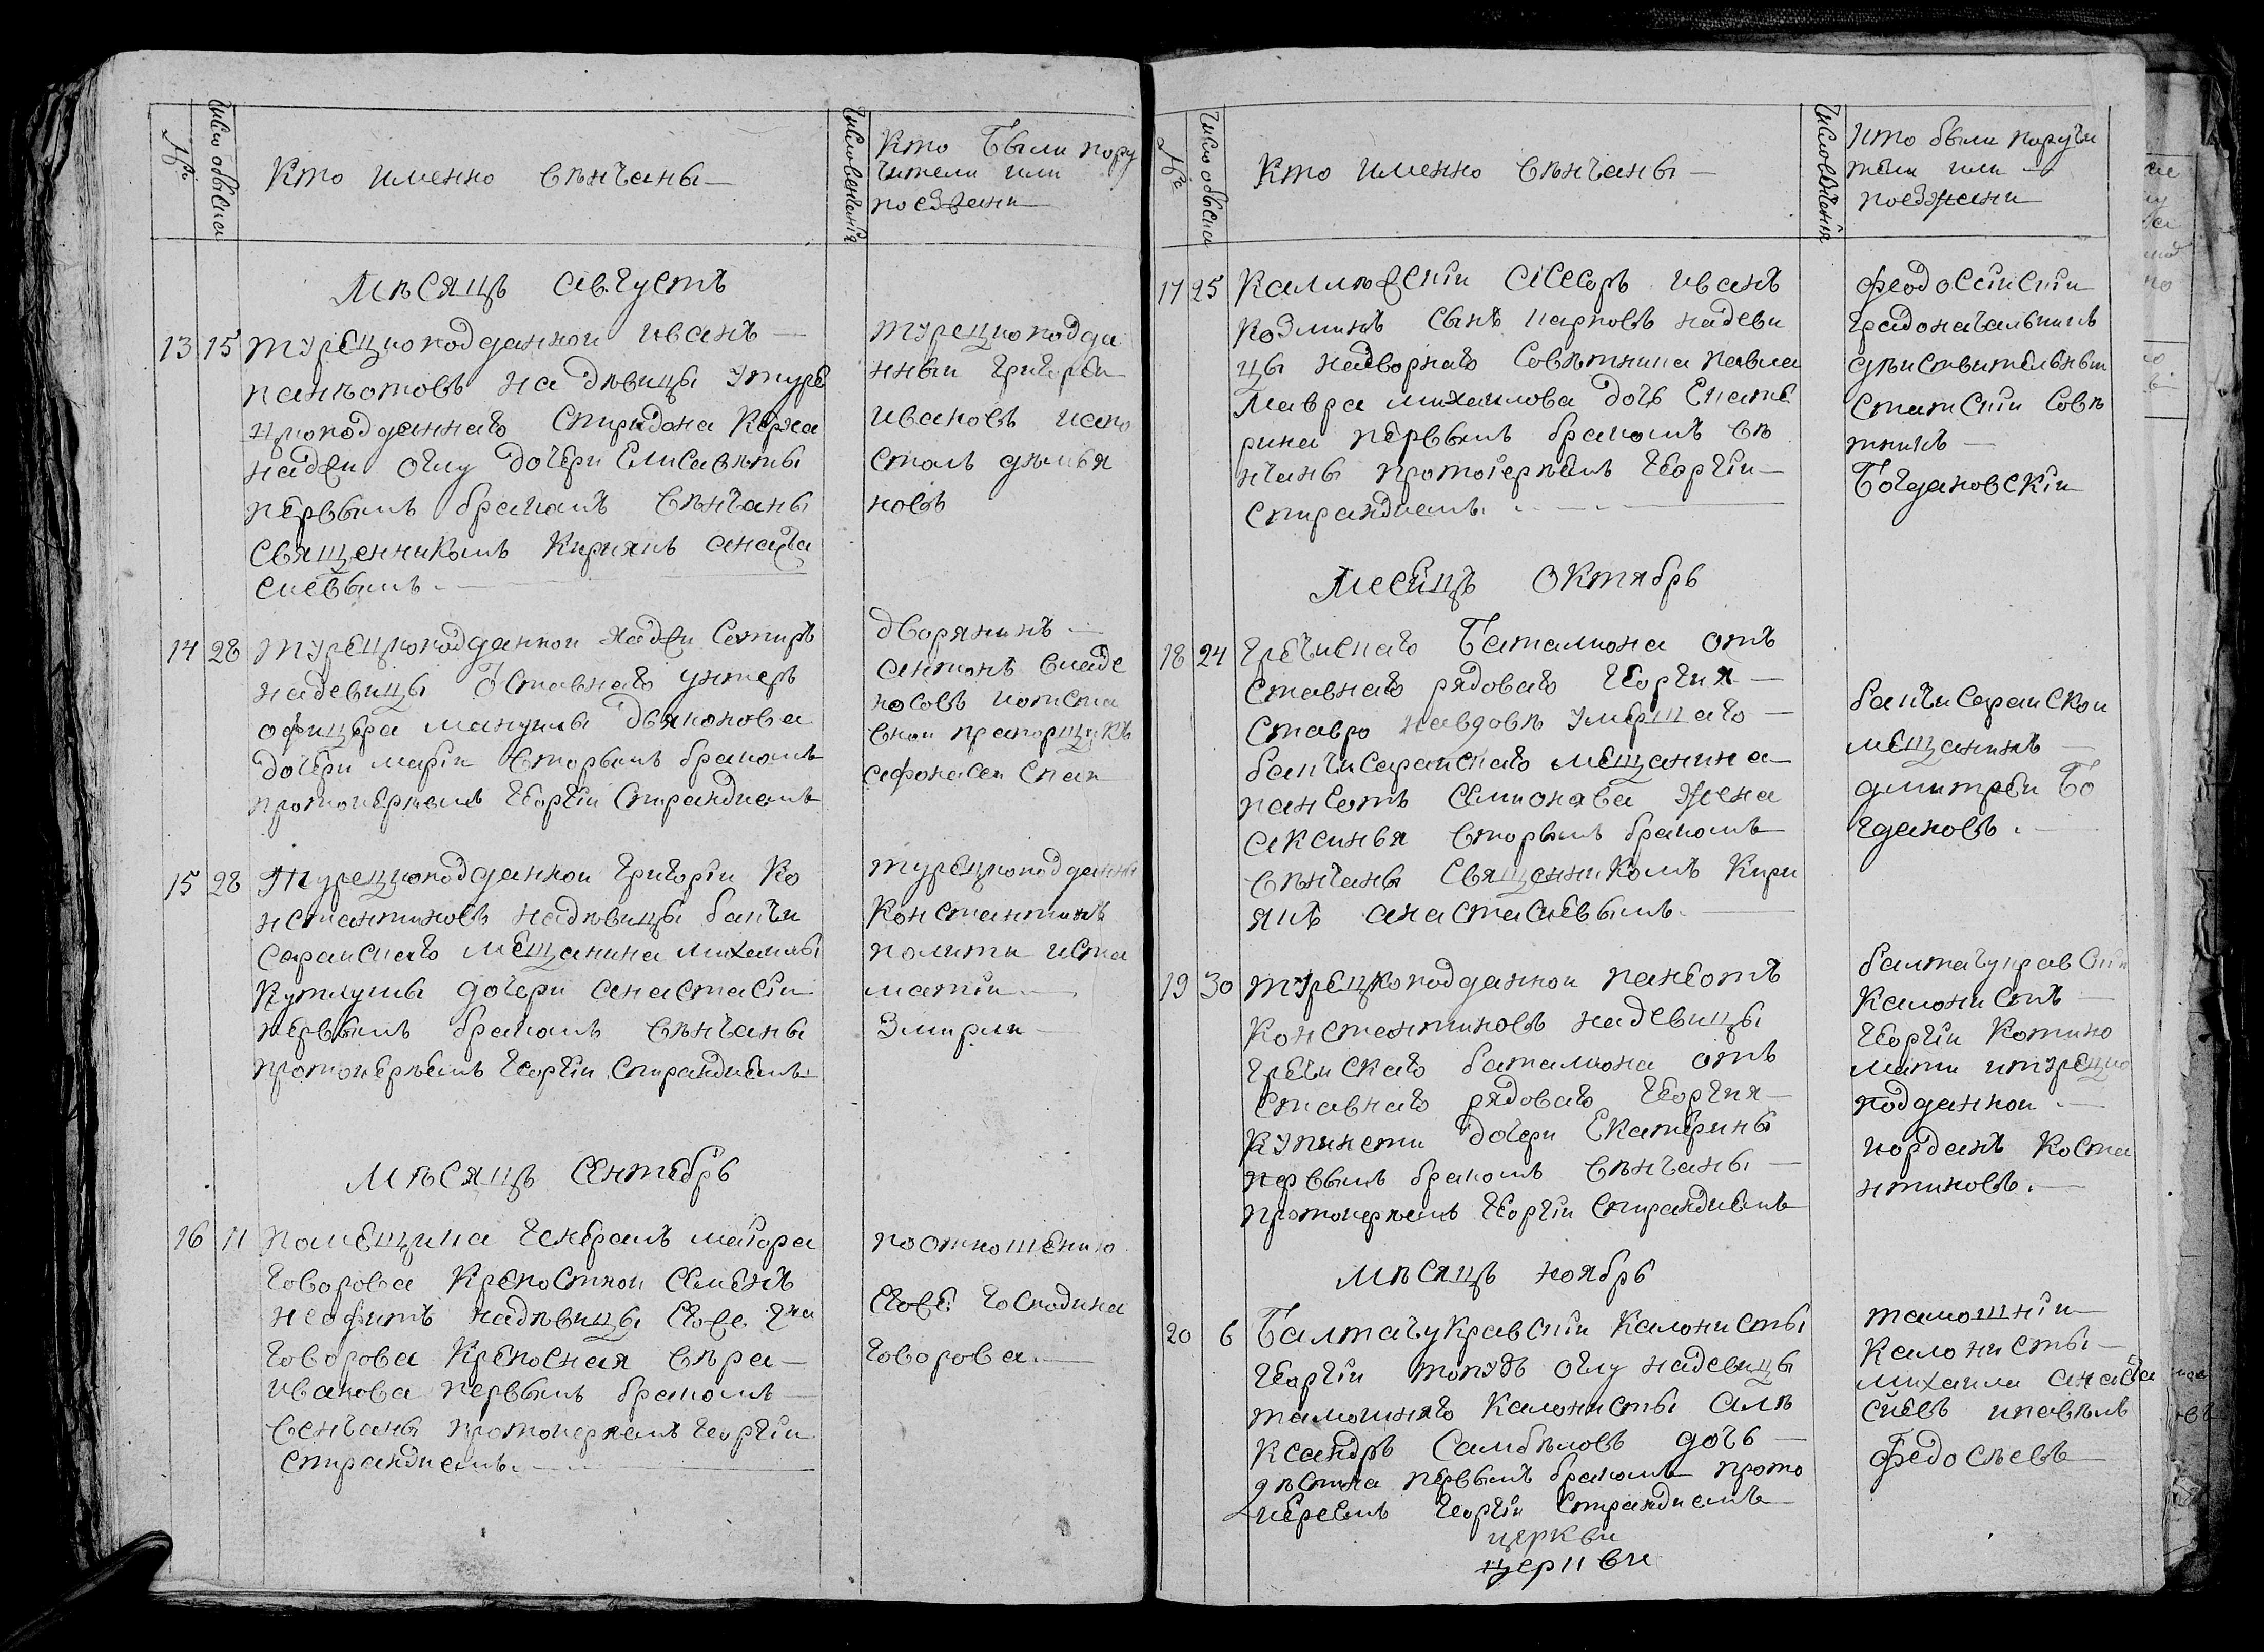 №
число обыска
Кто именно вѣнчаны
число венчанія
Кто были пору
чители или
поезжани
Мѣсяцъ августъ
13 15 турецкоподданнои иванъ
панаѣотовъ на дѣвицы у туре
цкоподданнаго Спиридона
хаджи оглу дочери Елисаветы
первымъ бракомъ вѣнчаны
священникомъ Кириякъ анаста
сиевымъ.
турецкоподда
нныи григореи
ивановъ иапо
столъ демья
новъ
14 28 турецкоподданнои хаджи Сотиръ
надевицы Оставнаго унтеръ
офицера манушы дьяконова
дочери маріи вторымъ бракомъ
протоиереемъ георгіи Спирандиемъ
дворянинъ
антонъ владе
носовъ иотста
внои прапорщикъ
афонасеи
15 28 Турецкоподданнои григоріи Ко
нстантиновъ надѣвицы бахчи
сараискаго мещанина михаилы
Кутлушы дочери анастасіи
первымъ бракомъ вѣнчаны
протоиереемъ георгіи Спирандиемъ
турецкоподданны
Константинъ
полити иста
матіи
Змирли
Мѣсяцъ Сентебрь
16 11 помещика генералъ маіора
говорова Крепостнои Семенъ
неофитъ надѣвицы его же г.на
говорова Крепосная вѣра
иванова первымъ бракомъ
венчаны протоиереемъ георгіи
Спирандиемъ.
поотношению
его же господина
говорова.
№
число обыска
Кто именно вѣнчаны
число вѣнчания
Кто были поручи
тели или
поезжани
17 25 Коллежскіи асесоръ иванъ
Козминъ сынъ марковъ надеви
цы надворнаго Советника павла
Мавра михаилова дочь Екате
рина первымъ бракомъ вѣ
нчаны протоіереемъ георгіи
Спирандиемъ.
феодосіискіи
градоначальникъ
дѣиствительныи
Статскіи Совѣ
тникъ
Богдановскіи
Месецъ Октябрь
18 24 греческаго Баталиона от
ставнаго рядоваго георгия
Ставро навдовѣ умершаго
бахчисараискаго мещанина
панаѣотъ Семионава жена
аксинья вторымъ бракомъ
вѣнчаны священникомъ Кири
якъ анастасиевымъ.
бахчисараискои
мещанинъ
дмитреи Бо
гдановъ.
19 30 турецкоподданнои панаѣотъ
Константиновъ надевицы
греческаго баталиона от
ставнаго рядоваго георгия
Купинети дочери Екатерины
первымъ бракомъ вѣнчаны
протоиереемъ георгіи Спирандиемъ
балтачукравскіи
Калонистъ
георгіи
итурецко
подданнои
иорданъ Конста
нтиновъ.
Мѣсяцъ ноябрь
20 6 Балтачукравскіи Калонисты
георгіи топузъ оглу надевицы
тамошняго Калонисты але
ксандръ Самбѣловъ дочь
первымъ бракомъ прото
иереемъ георгіи Спирандиемъ
тамошніи
Калонисты
михаила анаста
сиевъ ипавѣлъ
федосѣевъ
церкви
церкви